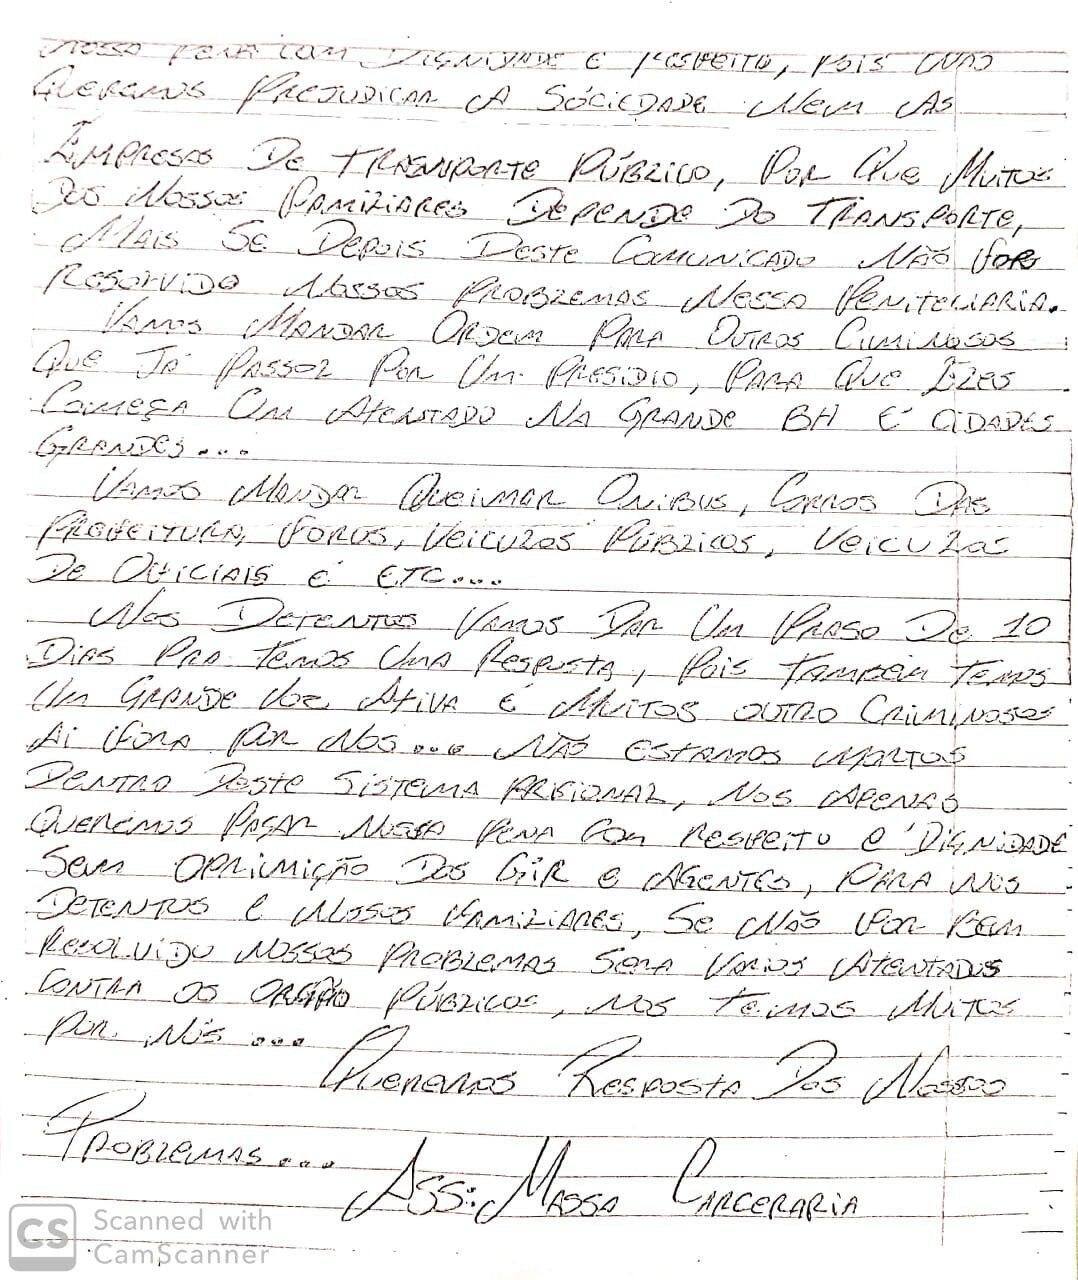 Nossa Pena com Dignidade e Respeito, pois não
Queremos Prejudicar A Sociedade Nem As
Empresas De Transporte Público, Por Que Muitos
Dos Nossos Familiares Depende Do Transporte,
Mais Se Depois Deste Comunicado Não For
Resolvido Nossos Problemas Nessa Penitenciaria.
Vamos Mandar Ordem Para Outros Criminosos
Que Já Passol Por Um Presidio, Para Que Eles
Começa Um Atentado Na Grande BH E Cidades
Grandes...
Vamos Mandar Queimar Onibus, Carros Das
Prefeitura, Foros, Veiculos Públicos, Veiculos
De Oficiais E ETC...
Nos Detentos Vamos Dar Um Praso De 10
Dias Pra Temos Uma Resposta, Pois Também Temos
Um Grande Voz Ativa E Muitos outro Criminosos
Ai Fora Por Nos... Não Estamos Mortos
Dentro Deste Sistema Prisional, Nos Apenas
Queremos Pagar Nossa Pena Com Respeito e Dignidade
Sem Oprimição Dos GIR e Agentes, Para Nos
Detentos e Nossos Familiares, Se Não For Bem
Resolvido Nossos Problemas Sera Varios Atentados
Contra Os Orgão Públicos, Nos Temos Muitos
Por Nós...
Queremos Resposta Dos Nossos
Problemas...
Ass: Massa Carceraria
CS Scanned with
CamScanner